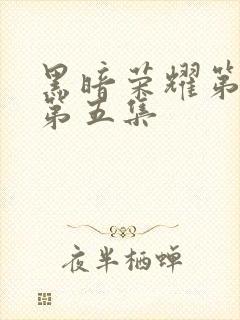 黑暗荣耀第
第五集
夜半栖蝉